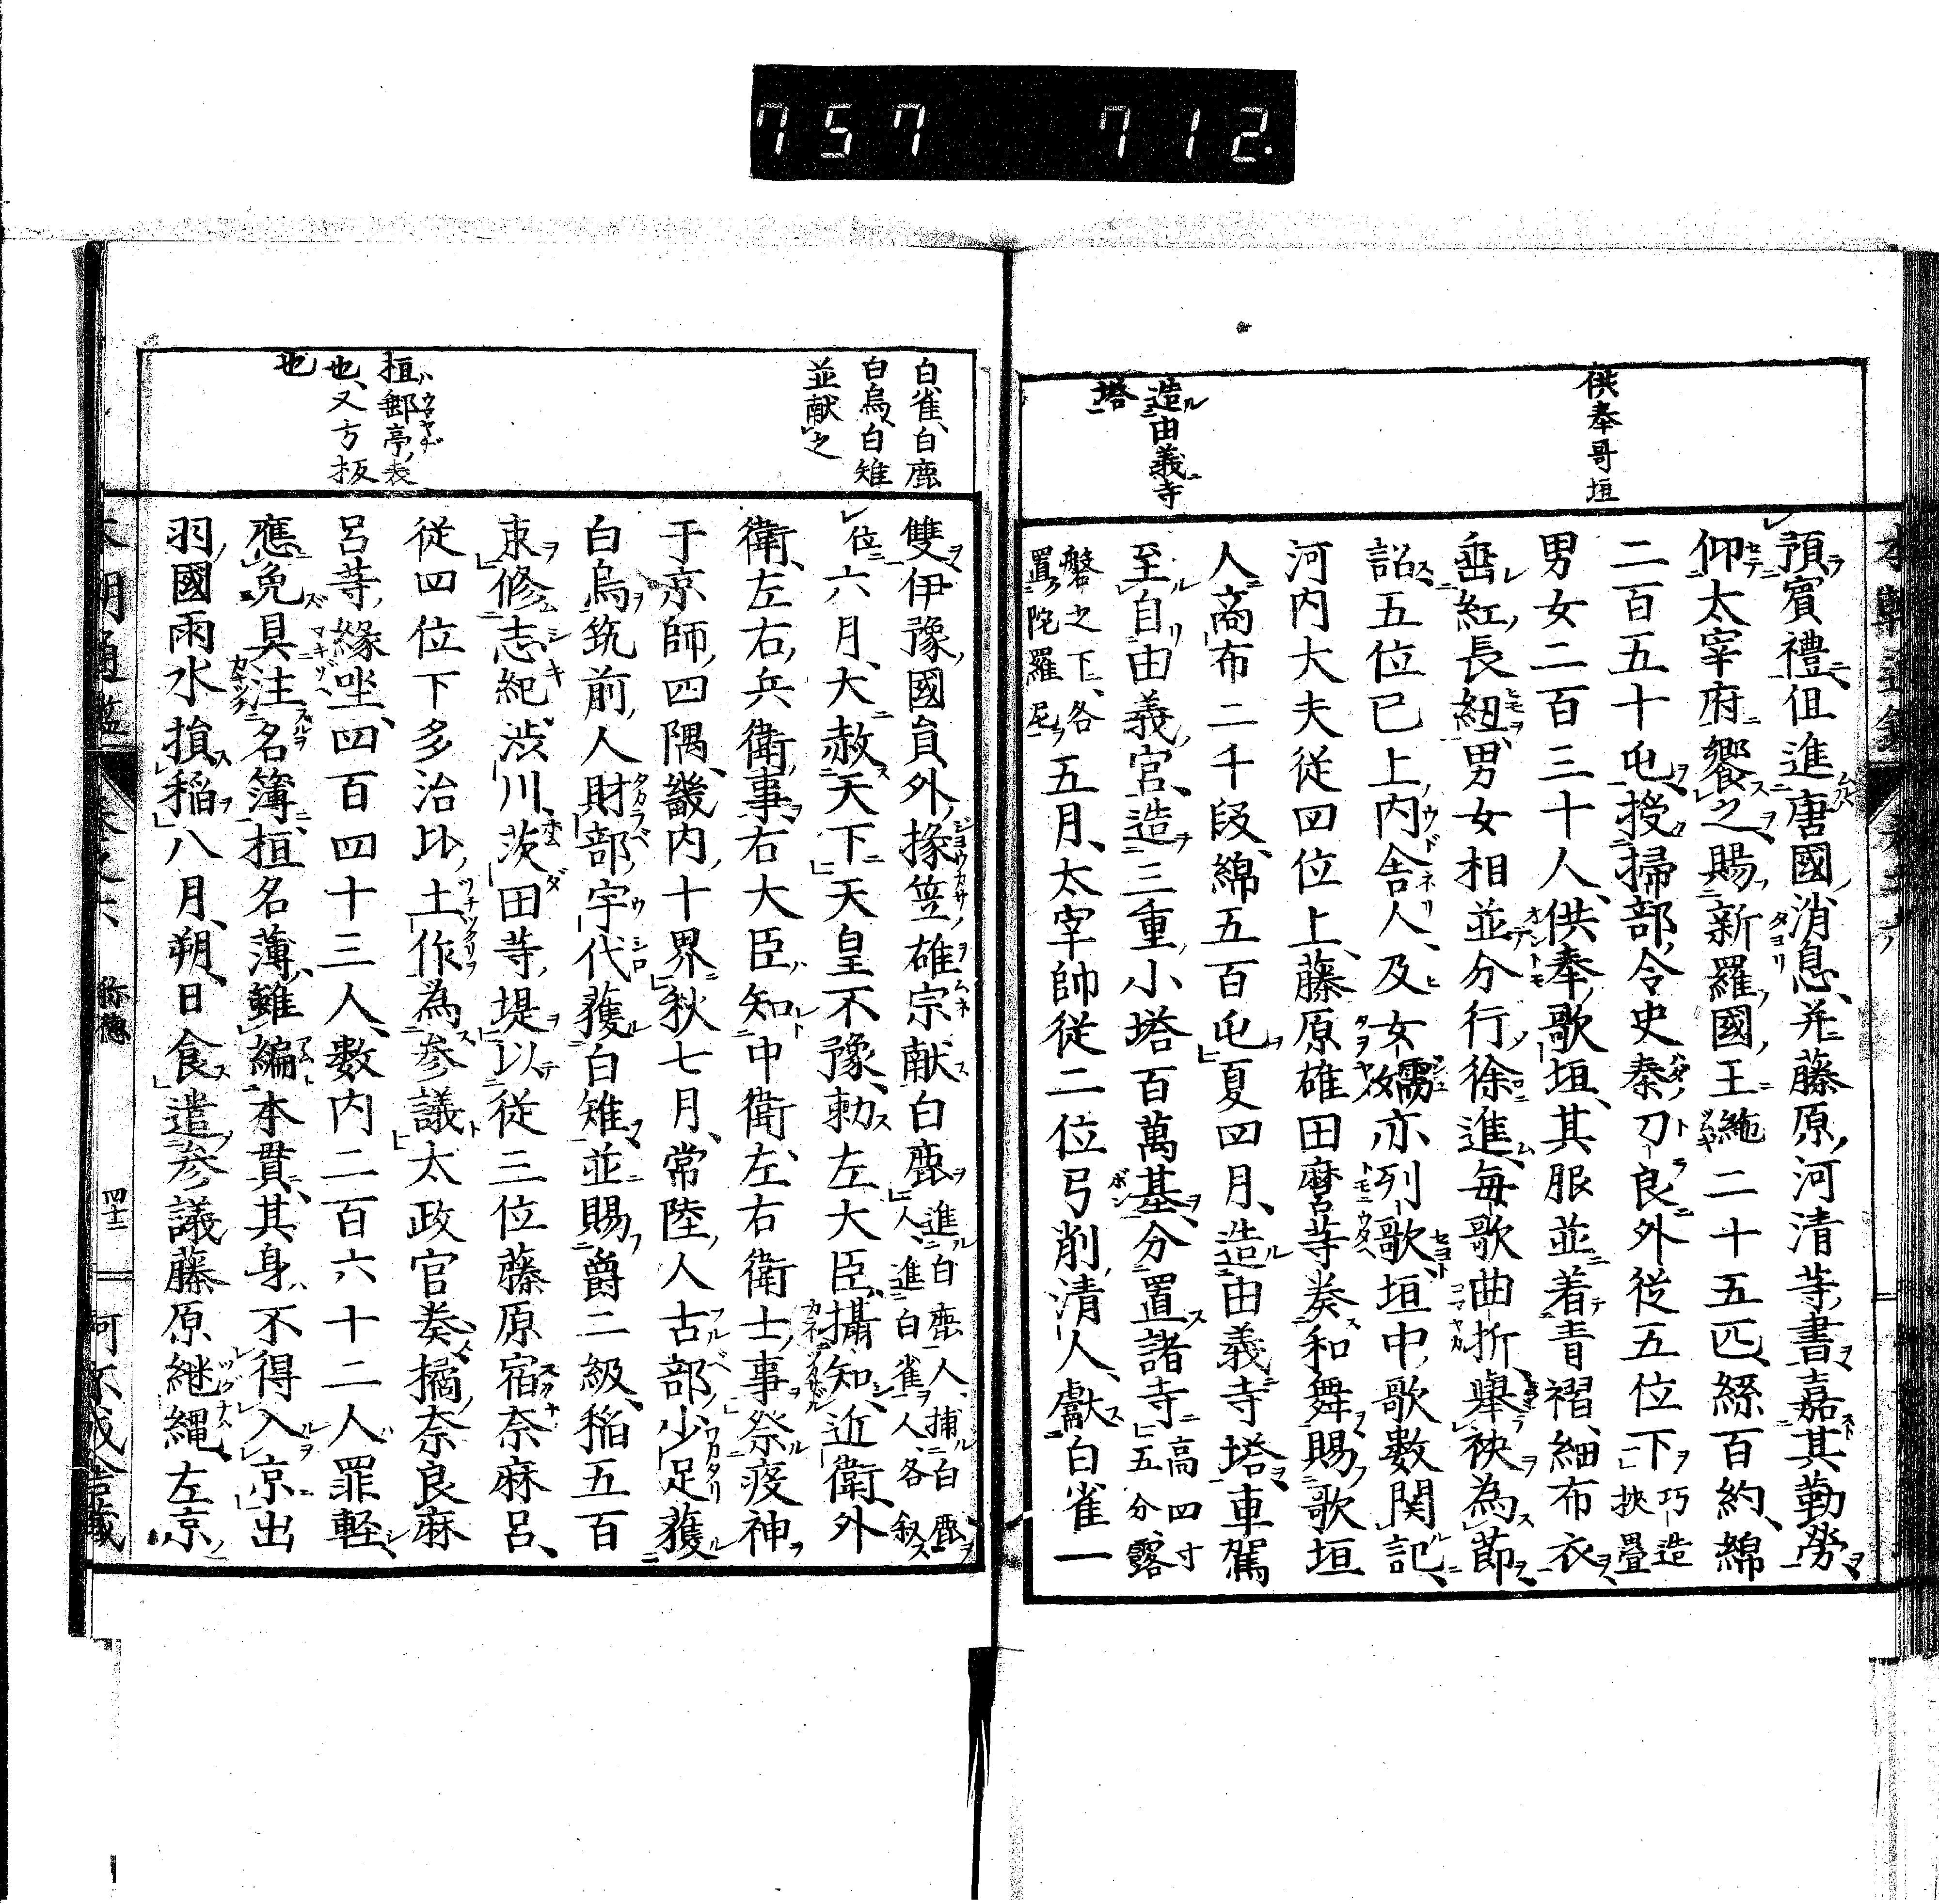 757 712.
供奉哥垣
造由義寺
塔
預賓禮但進唐國消息并藤原河清等書嘉其勤勞
仰太宰府饗之賜新羅國王絁二十五匹絲百約綿
二百五十屯授掃部令史秦刀良外從五位下巧造挾疊
男女二百三十人供奉歌垣其服並着青褶細布衣
垂紅長紐男女相並分行徐進每歌曲折舉袂為節
詔五位已上內舍人及女嬬亦列歌垣中歌數関記
河内大夫從四位上藤原雄田麿等奏和舞賜歌垣
人商布二千段綿五百屯夏四月造由義寺塔車駕
至自由義宮造三重小塔百萬基分置諸寺高四寸五分露
磐之下各置陀羅尼五月太宰帥從二位弓削清人獻白雀一
白雀白鹿
白烏白雉
並献之
桓郵亭表
也又方板
也
雙伊豫國貟外掾笠雄宗献白鹿進白鹿人捕白鹿人進白雀人各叙
位六月大赦天下天皇不豫勅左大臣攝知近衛外
衛左右兵衛事右大臣知中衛左右衛士事祭疫神
于京師四隅畿内十界秋七月常陸人古部少足獲
白烏筑前人財部宇代獲白雉並賜爵二級稲五百
束修志紀渋川茨田等堤以從三位藤原宿奈麻呂
從四位下多治比土作為參議太政官奏橘奈良麻
呂等緣坐四百四十三人數内二百六十二人罪軽
應免具注名簿桓名薄雖編本貫其身不得入京出
羽國雨水損稲八月朔日食遣參議藤原継繩左京
四十二